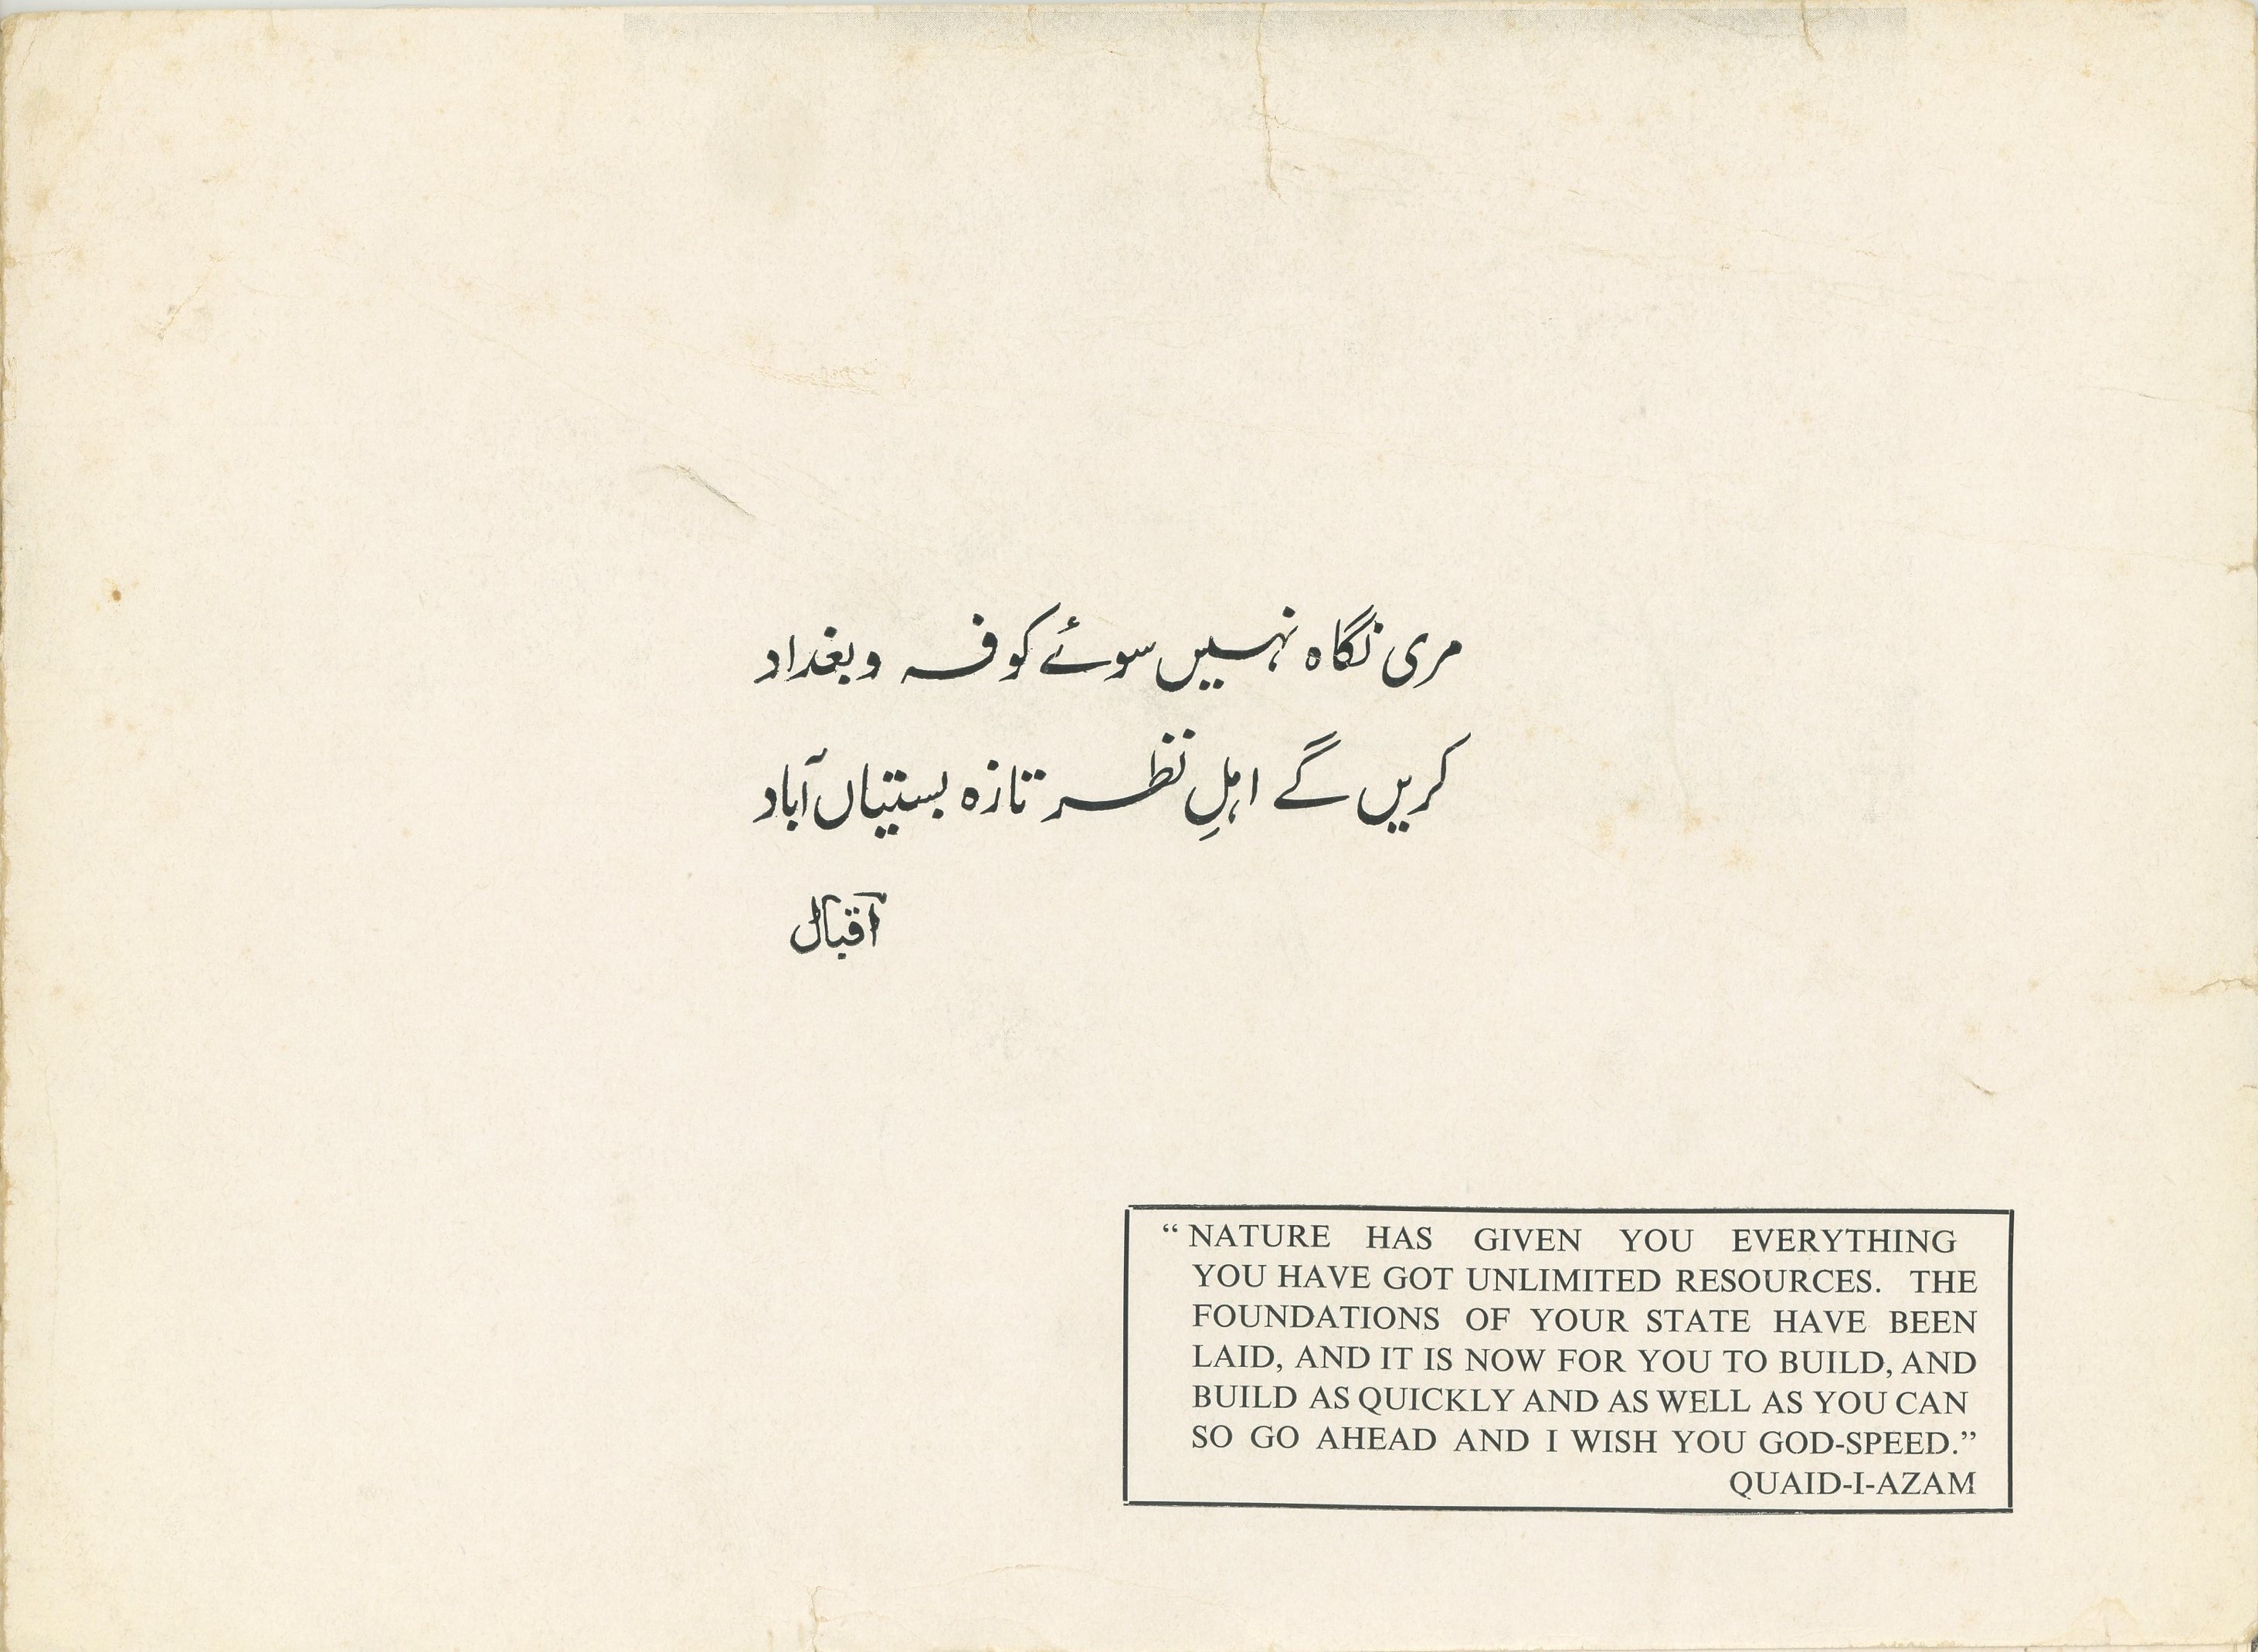 مری نگاہ نہیں سوئے کوفہ و بغداد
کریں گے اہلِ نظر تازہ بستیاں آباد
اقبال
“ NATURE HAS GIVEN YOU EVERYTHING
YOU HAVE GOT UNLIMITED RESOURCES. THE
FOUNDATIONS OF YOUR STATE HAVE BEEN
LAID, AND IT IS NOW FOR YOU TO BUILD, AND
BUILD AS QUICKLY AND AS WELL AS YOU CAN
SO GO AHEAD AND I WISH YOU GOD-SPEED.”
QUAID-I-AZAM